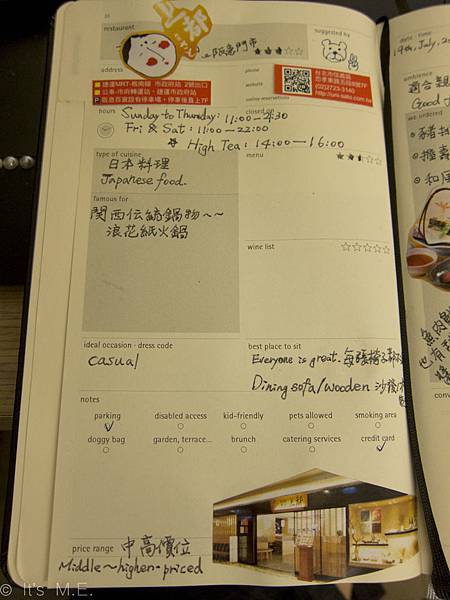 restaurant
suggested by
上村
阪急門市
address
phone
website
online reservations
捷運MRT-板南線 市政府站 2號出口
公車-市府轉運站、捷運市政府站
P 阪急百貨設有停車場，停車後直上7F
台北市信義區
忠孝東路五段8號7F
(02)2723-3140
http://uni-sato.com.tw
hours
closed on
Sunday to Thursday: 11:00-21:30
Fri & Sat: 11:00-22:00
High Tea: 14:00-16:00
type of cuisine
日本料理
Japanese food.
menu
famous for
関西伝統鍋物~~
浪花紙火鍋
wine list
ideal occasion · dress code
casual
best place to sit
Everyone is great. 每張椅子都不
Dining sofa/wooden 沙發/木
notes
parking
disabled access
kid-friendly
pets allowed
smoking area
doggy bag
garden, terrace...
brunch
catering services
credit card
price range
中高價位
Middle~higher-priced
date · time
19th, July, 20
ambience
適合親
Good f
we ordered
豬排
和風
魚肉鮮
也有
© It's M.E.